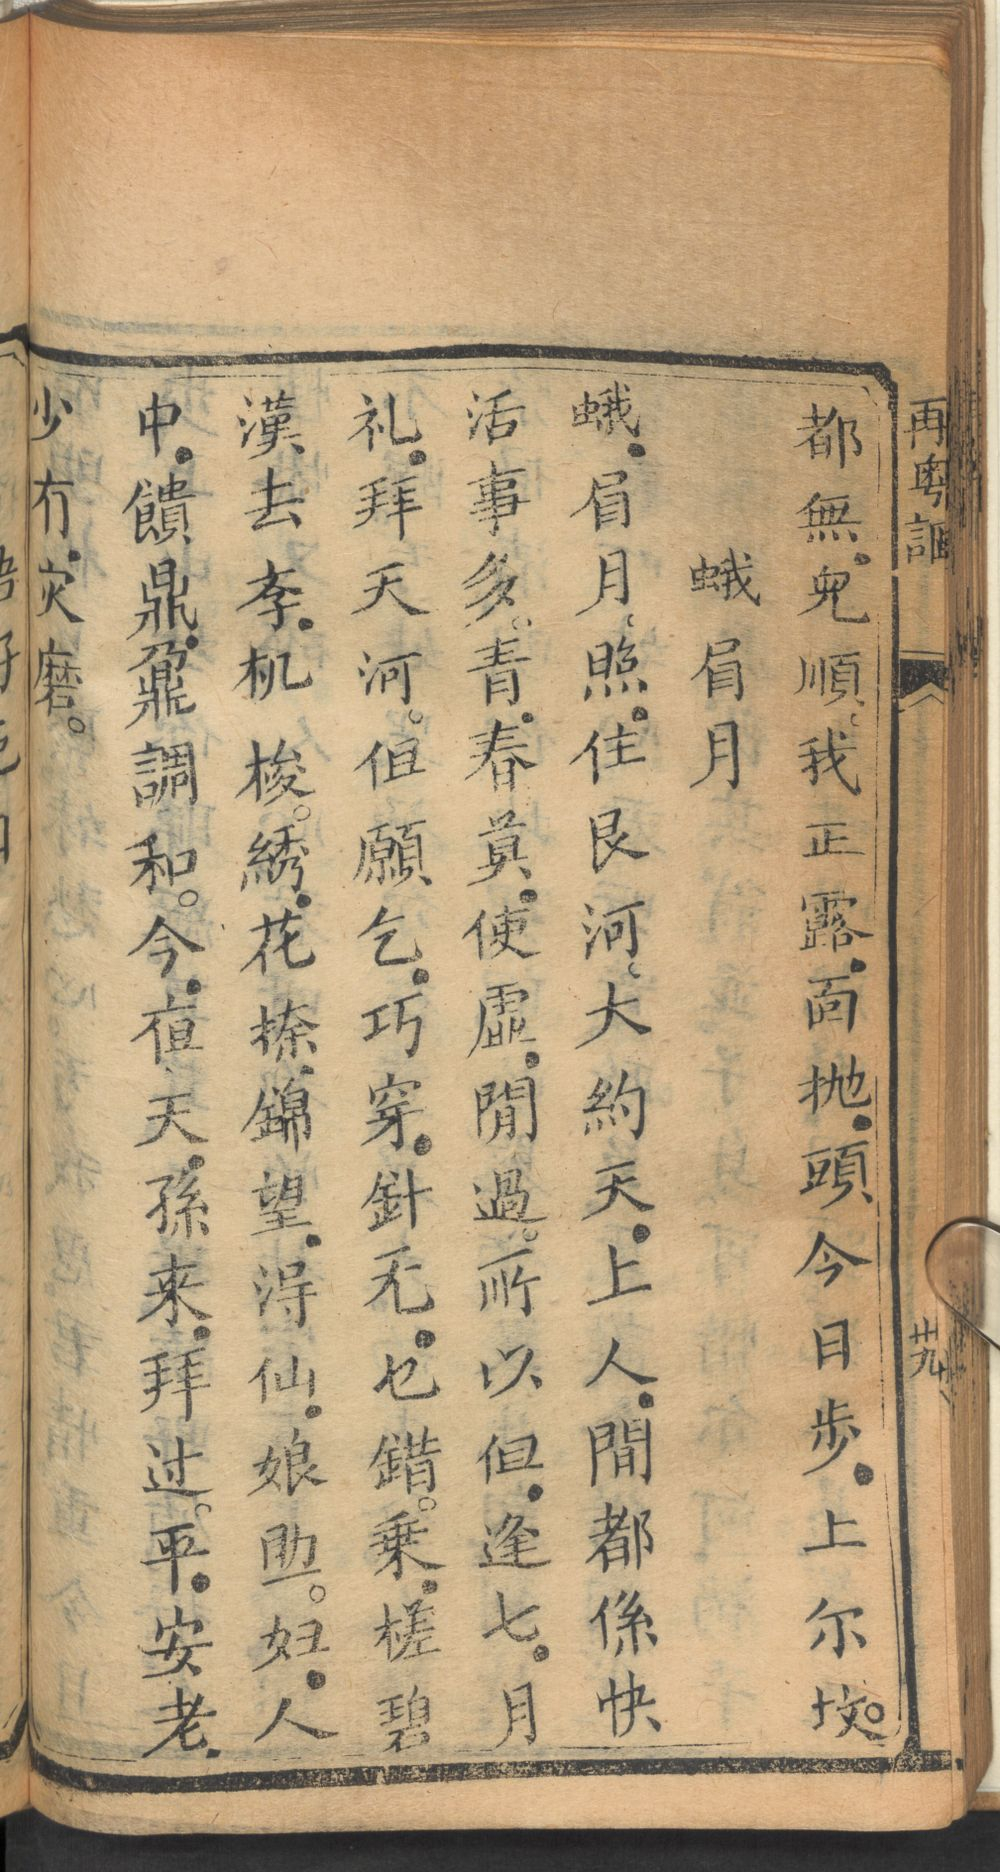 再粤謳
廿九
都無兇順我正露面抛頭今日步上尔坟
蛾眉月
蛾眉月照住艮河大約天上人間都係快
活事多青春莫使虛閒過所以但逢七月
礼拜天河但願乞巧穿針无乜錯乘槎碧
漢去李机梭綉花捺錦望淂仙娘助妇人
中饋鼎鼐調和今值天孫来拜过平安老
少冇灾磨